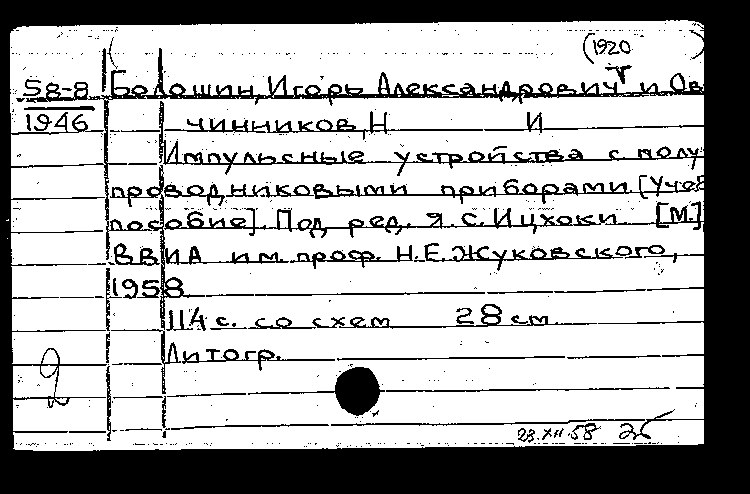 (1920 )
58-8 Болошин, Игорь Александрович и Ов
1946 чинников, Н И
Импульсные устройства с полу
проводниковыми приборами. [Учеб
пособие]. Под ред. Я.С. Ицхоки [М.],
ВВИА им. проф. Н.Е. Жуковского,
1958
114 с. со схем 28 см.
Литогр.
2
23.XII.58